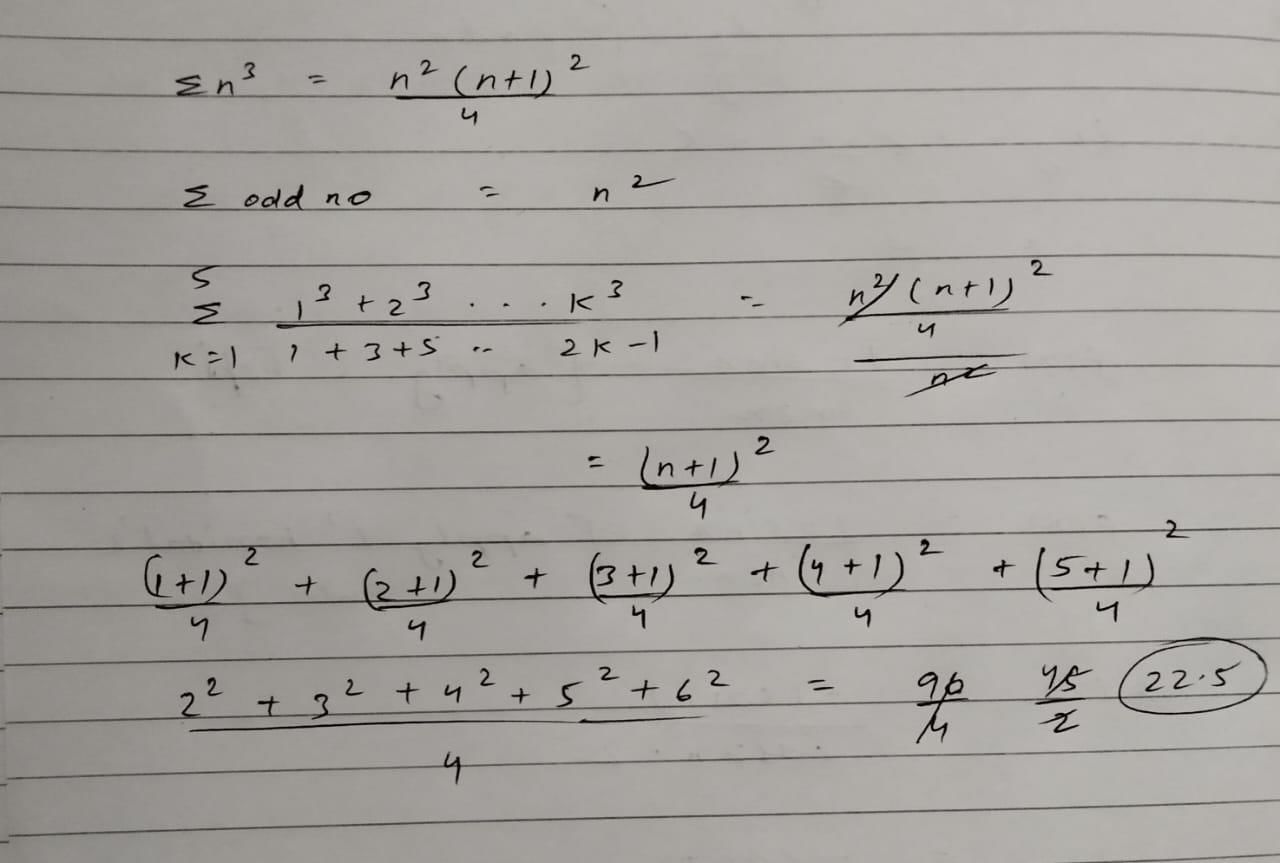 Σn³ = n²(n+1)²/4
Σ odd no = n²
5 Σ K=1 1³+2³ . . . K³ / 1+3+5 .. 2K-1 = n²(n+1)²/4 / n²
= (n+1)²/4
(1+1)²/4 + (2+1)²/4 + (3+1)²/4 + (4+1)²/4 + (5+1)²/4
2²+3²+4²+5²+6²/4 = 90/4 45/2 22.5